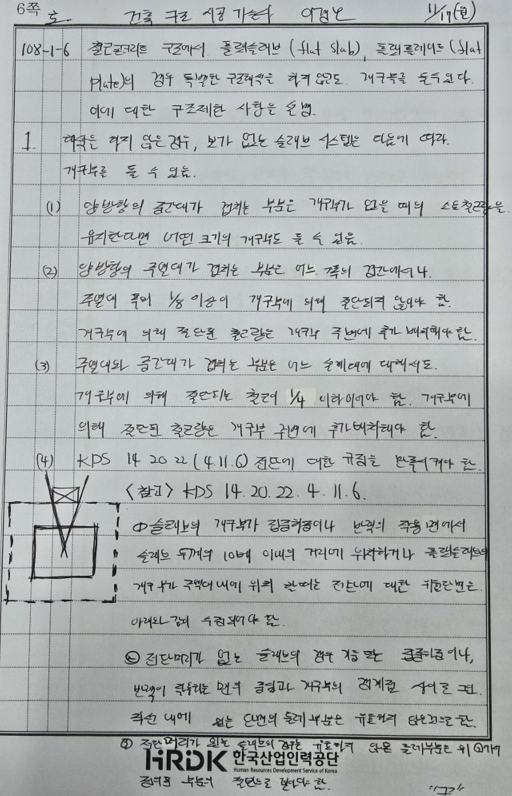 6쪽
호. 건축 구조 시공 기술사 11/17(월)
108-1-6 철근콘크리트 구조에서 플랫슬래브 (flat slab), 플랫플레이트 (flat
plate)의 경우 특별한 구조해석을 하지 않고도 개구부를 둘 수 있다.
이에 대한 구조제한 사항을 설명
1. 해석을 하지 않은 경우, 보가 없는 슬래브 시스템은 다음에 따라
개구부를 둘 수 있음.
(1) 양방향의 중간대가 겹치는 부분은 개구부가 없을 때의 소요철근량을
유지한다면 어떤 크기의 개구부도 둘 수 있음.
(2) 양방향의 주열대가 겹치는 부분은 어느 쪽의 경간에서나
주열대 폭의 1/8 이상이 개구부에 의해 절단되지 않아야 함.
개구부에 의해 절단된 철근량은 개구부 주변에 추가 배치해야 함.
(3) 주열대와 중간대가 겹치는 부분은 어느 설계대에 대해서도
개구부에 의해 절단되는 철근이 1/4 이하이어야 함. 개구부에
의해 절단된 철근량은 개구부 주변에 추가배치해야 함.
(4) KDS 14 20 22 (4.11.6) 전단에 대한 규정을 만족시켜야 함.
<참고> KDS 14.20.22.4.11.6.
① 슬래브의 개구부가 집중하중이나 반력의 작용면에서
슬래브 두께의 10배 이내의 거리에 위치하거나 플랫슬래브의
개구부가 주열대 내에 위치 한때는 전단에 대한 위험단면은
아래와 같이 수정되어야 함.
전단머리가 없는 슬래브의 경우 기둥 또는 집중하중이나,
반력이 작용하는 면의 중심과 개구부의 경계를 사이로 그은
직선 내에 있는 단면의 둘레 부분은 유효하지 않은것으로 함.
전단머리가 있는 슬래브의 경우는 유효하지 않은 둘레부분은 위
HRDK 한국산업인력공단
Human Resources Development Service of Korea
"끝"